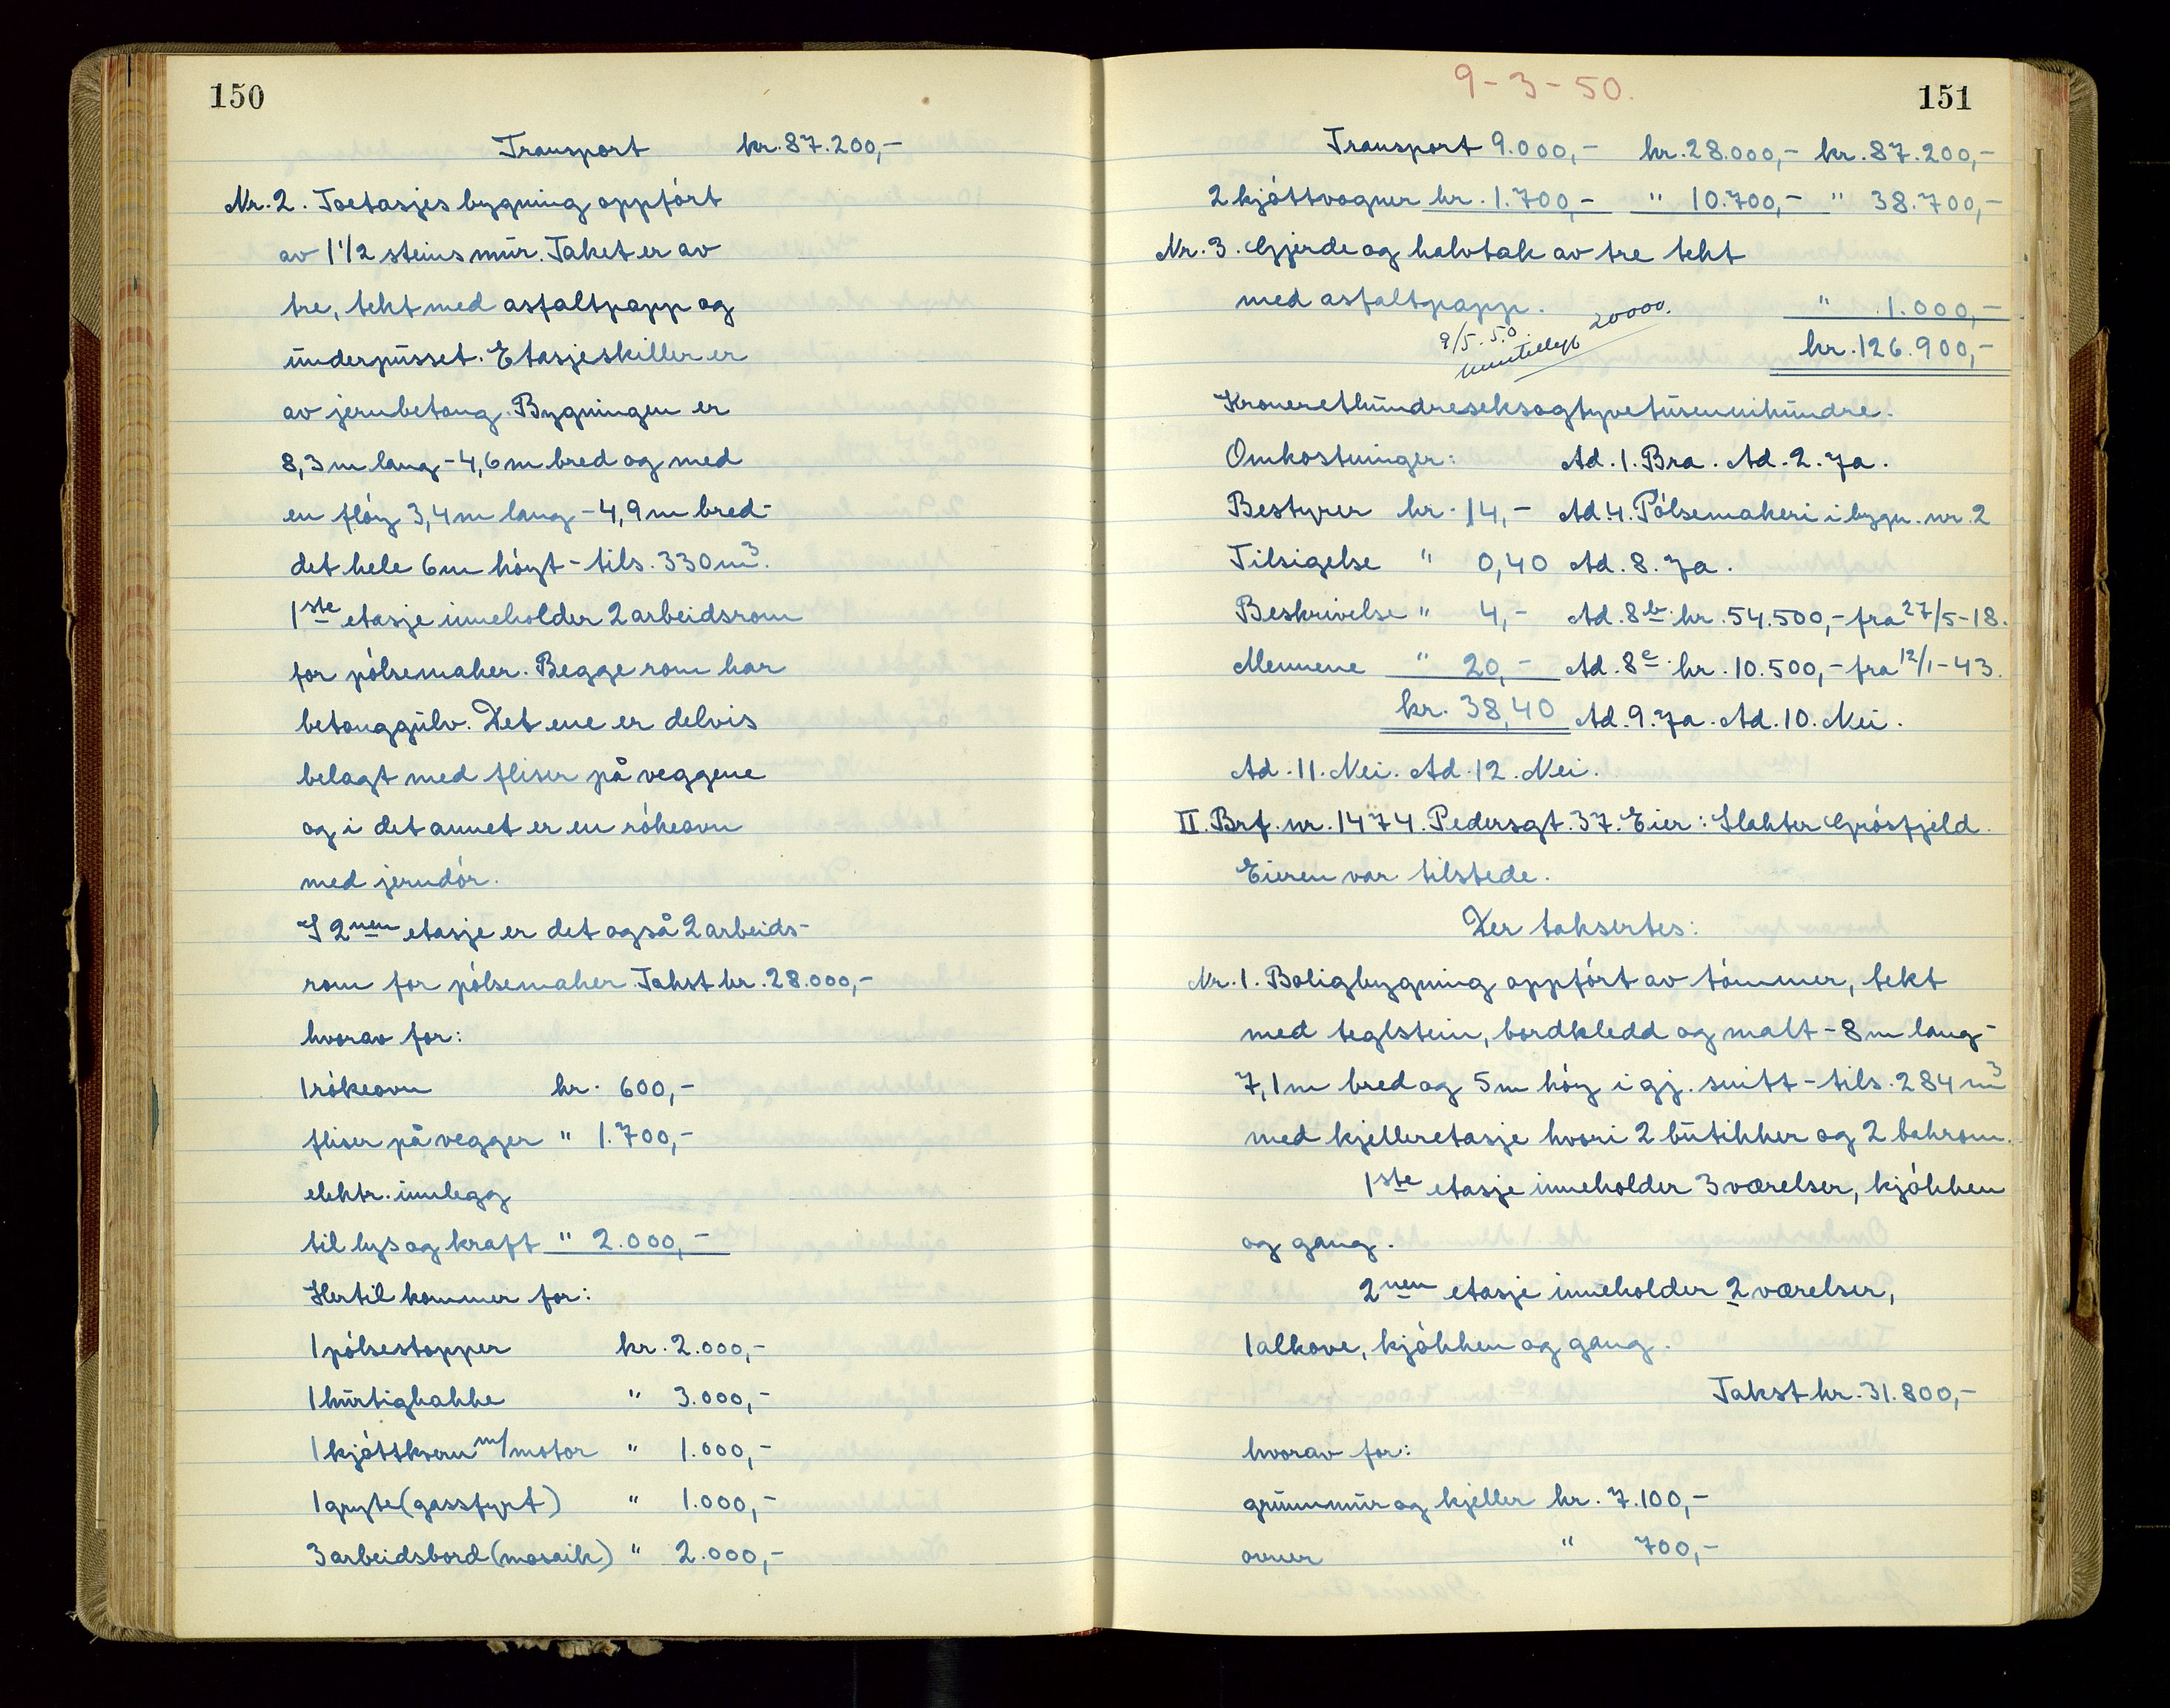 150
Transport kr. 87.200,-
Nr. 2. Toetasjes bygning oppført
av 1 1/2 steins mur. Taket er av
tre, tekt med asfaltpapp og
underpusset. Etasjeskiller er
av jernbetong. Bygningen er
8,3 m lang - 4,6 m bred og med
en fløy 3,4 m lang - 4,9 m bred -
det hele 6 m høyt - tils. 330 m³.
1ste etasje inneholder 2 arbeidsrom
for pølsemaker. Begge rom har
betonggulv. Det ene er delvis
belagt med fliser på veggene
og i det annet er en røkeovn
med jerndør.
I 2nen etasje er det også 2 arbeids-
rom for pølsemaker. Takst kr. 28.000,-
hvorav for:
1 røkeovn kr. 600,-
fliser på vegger " 1.700,-
elektr. innlegg
til lys og kraft " 2.000,-
Hertil kommer for:
1 pølsestopper kr. 2.000,-
1 hurtighakke " 3.000,-
1 kjøttkvern m/motor " 1.000,-
1 gryte (gassfyrt) " 1.000,-
3 arbeidsbord (mosaik) " 2.000,-
9-3-50.
151
Transport 9.000,- kr. 28.000,- kr. 87.200,-
2 kjøttvogner kr. 1.700,- " 10.700,- " 38.700,-
Nr. 3. Gjerde og halvtak av tre tekt
med asfaltpapp. " 1.000,-
9/5.50. 20000.
kr. 126.900,-
Kronerethundreseksogtyvetusennihundre.
Omkostninger: Ad. 1. Bra. Ad. 2. Ja.
Bestyrer kr. 14,- Ad. 4. Pølsemakeri i bygn. nr. 2
Tilsigelse " 0,40 Ad. 8. Ja.
Beskrivelse " 4,- Ad. 8b. kr. 54.500,- fra 27/5-18.
Mennene " 20,- Ad. 8c. kr. 10.500,- fra 12/1-43.
kr. 38,40 Ad. 9. Ja. Ad. 10. Nei.
Ad. 11. Nei. Ad. 12. Nei.
II. Brf. nr. 1474. Pedersgt. 37. Eier: Slakter Grøsfjeld.
Eieren var tilstede.
Der taksertes:
Nr. 1. Boligbygning oppført av tømmer, tekt
med teglstein, bordkledd og malt - 8 m lang -
7,1 m bred og 5 m høy i gj. snitt - tils. 284 m³
med kjelleretasje hvori 2 butikker og 2 bakrom.
1ste etasje inneholder 3 værelser, kjøkken
og gang.
2nen etasje inneholder 2 værelser,
1 alkove, kjøkken og gang.
Takst kr. 31.800,-
hvorav for:
grunnmur og kjeller kr. 7.100,-
ovner " 700,-